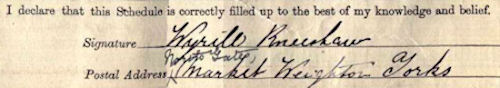 I declare that this Schedule is correctly filled up to the best of my knowledge and belief.
Signature Wyrill Kneeshaw
North Gate
Postal Address Market Weighton Yorks